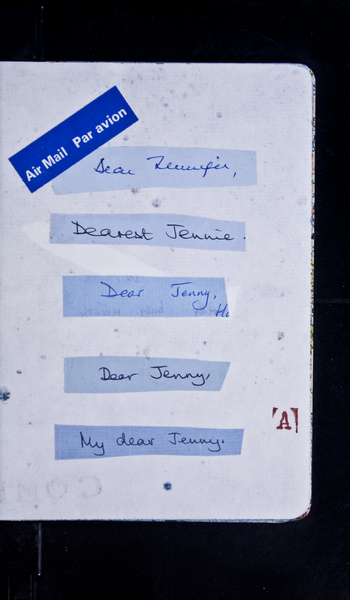 Air Mail Par avion
Dear Jennifer,
Dearest Jennie.
Dear Jenny,
Dear Jenny,
My dear Jenny.
[A]